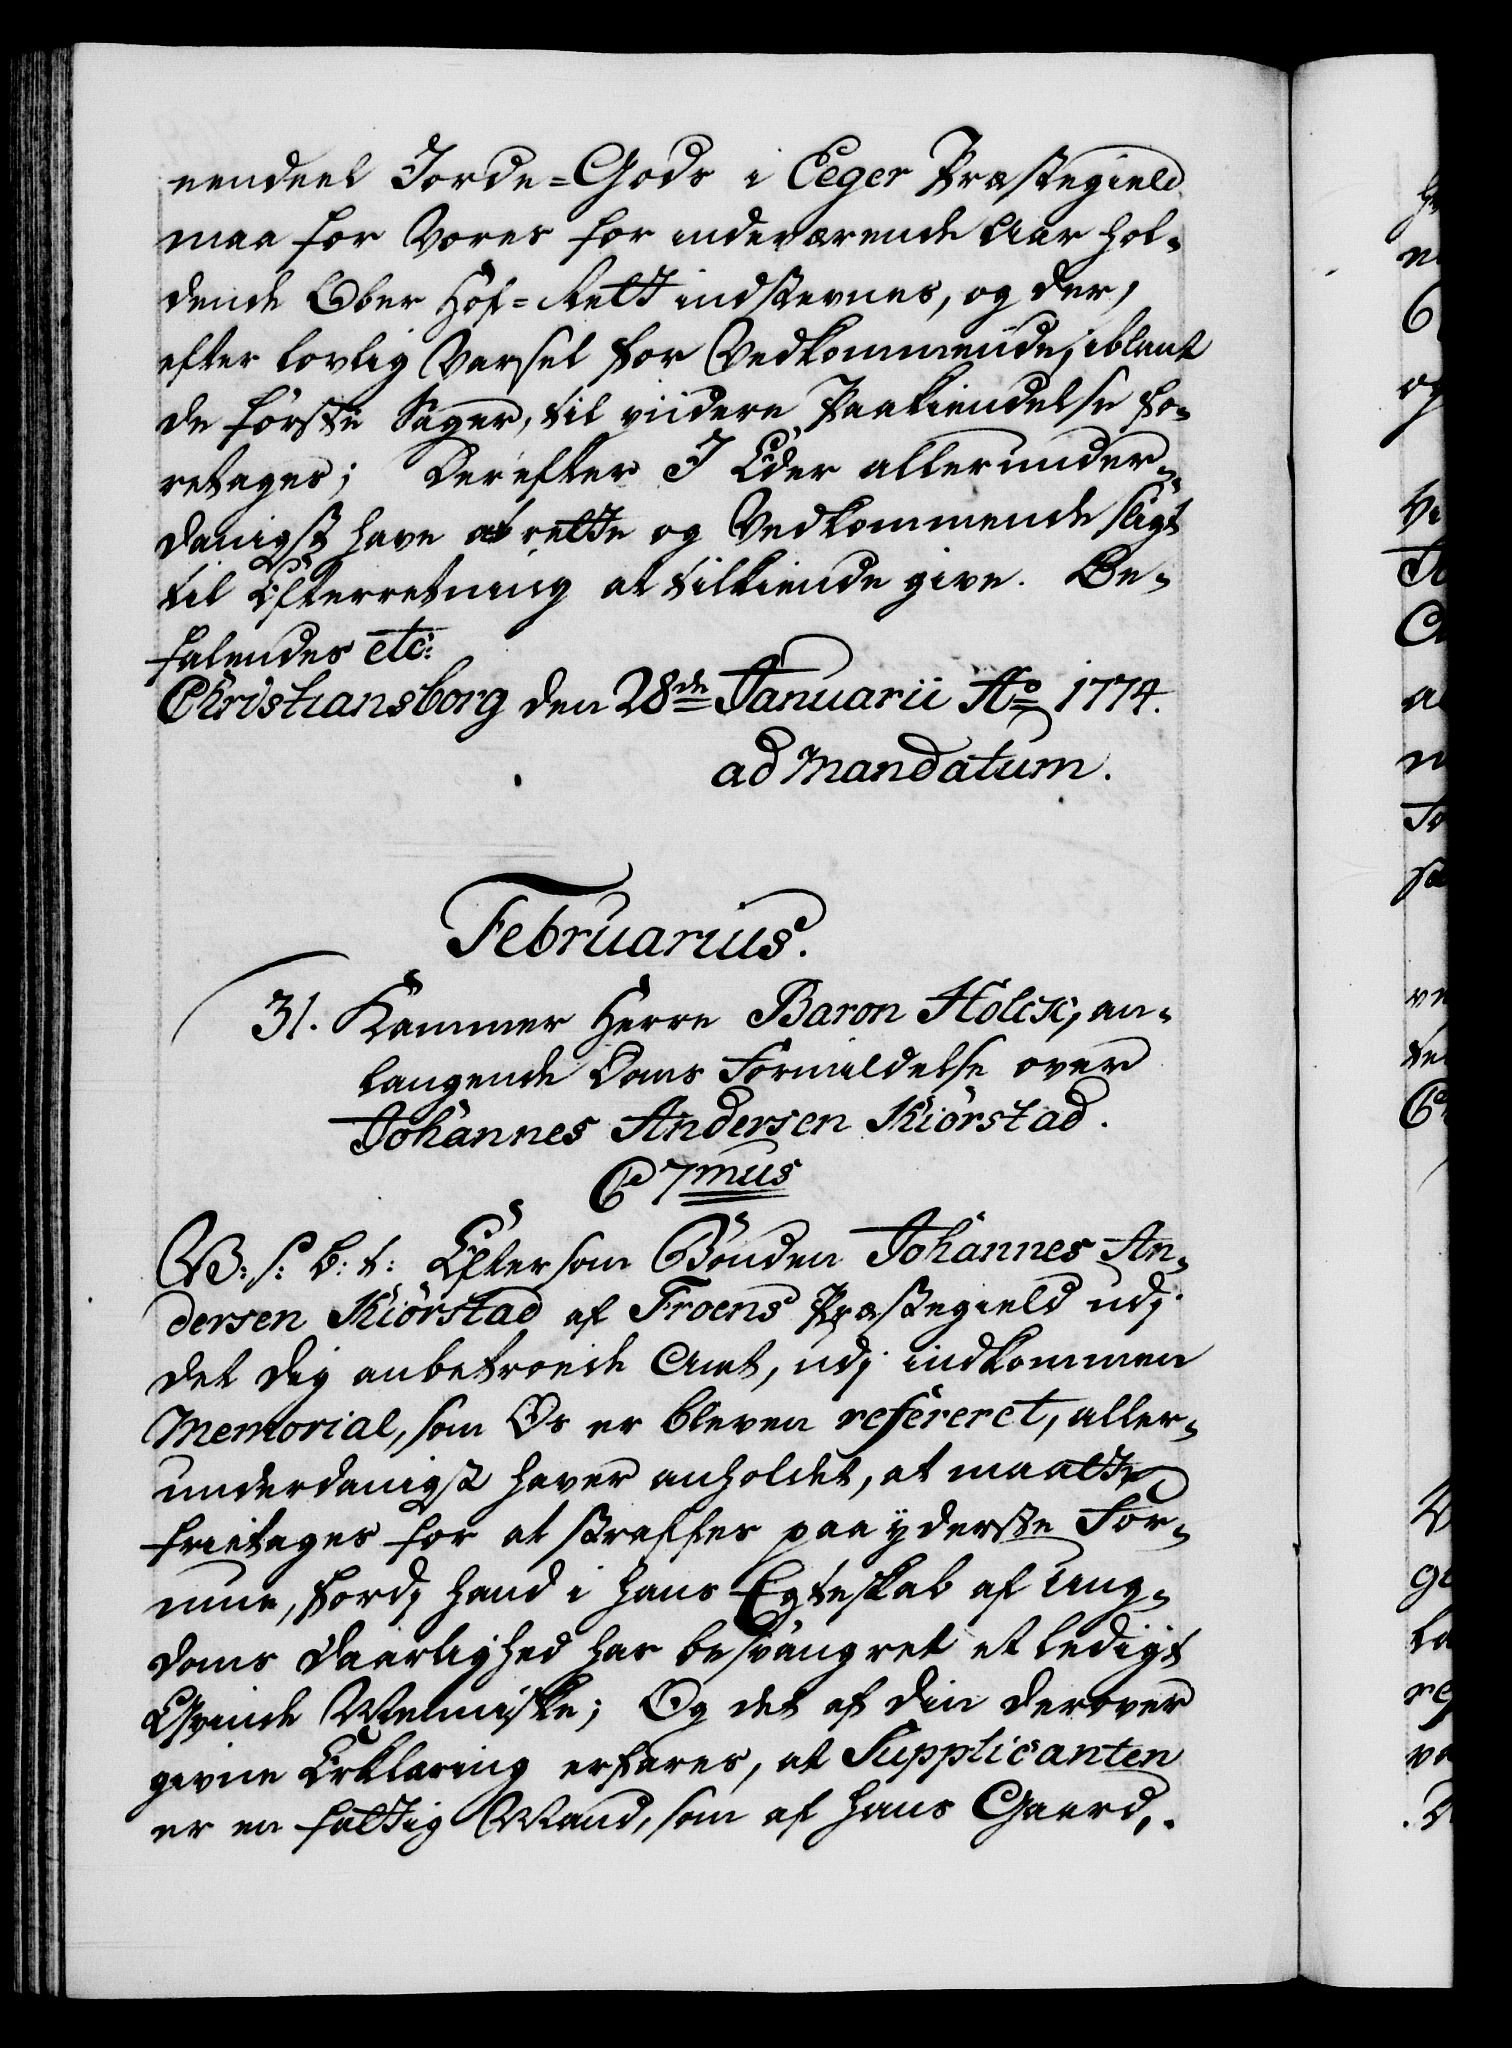 eendeel Jorde=Gods i Eeger Præstegield
maa for Vores for indeværende Aar hol-
dende Ober Hof=Rett indstevnes, og der,
efter lovlig Varsel for Vedkommende, iblant
de første Sager, til viidere Paakiendelse fo-
retages; Derefter I Eder allerunder-
danigst have at rette og Vedkommende sligt
til Efterretning at tilkiende give. Be-
falendes etc:
Christiansborg den 28de Januarii Ao 1774.
ad Mandatum.
Februarius.
31. Kammer Herre Baron Holck, an-
langende Doms Formildelse over
Johannes Andersen Kiörstad.
C 7mus
W: s: b: t: Eftersom Bonden Johannes An-
dersen Kiörstad af Froens Præstegield udj
det dig anbetroede Amt, udj indkommen
Memorial, som Os er bleven refereret, aller-
underdanigst haver anholdet, at maatte
fritages for at straffes paa yderste For-
mue, fordj hand i hans Egteskab af Ung-
doms Daarlighed har besvangret et ledigt
Qvinde Menniske; Og det af din derover
givne Erklæring erfares, at Supplicanten
er en fattig Mand, som af hans Gaard,